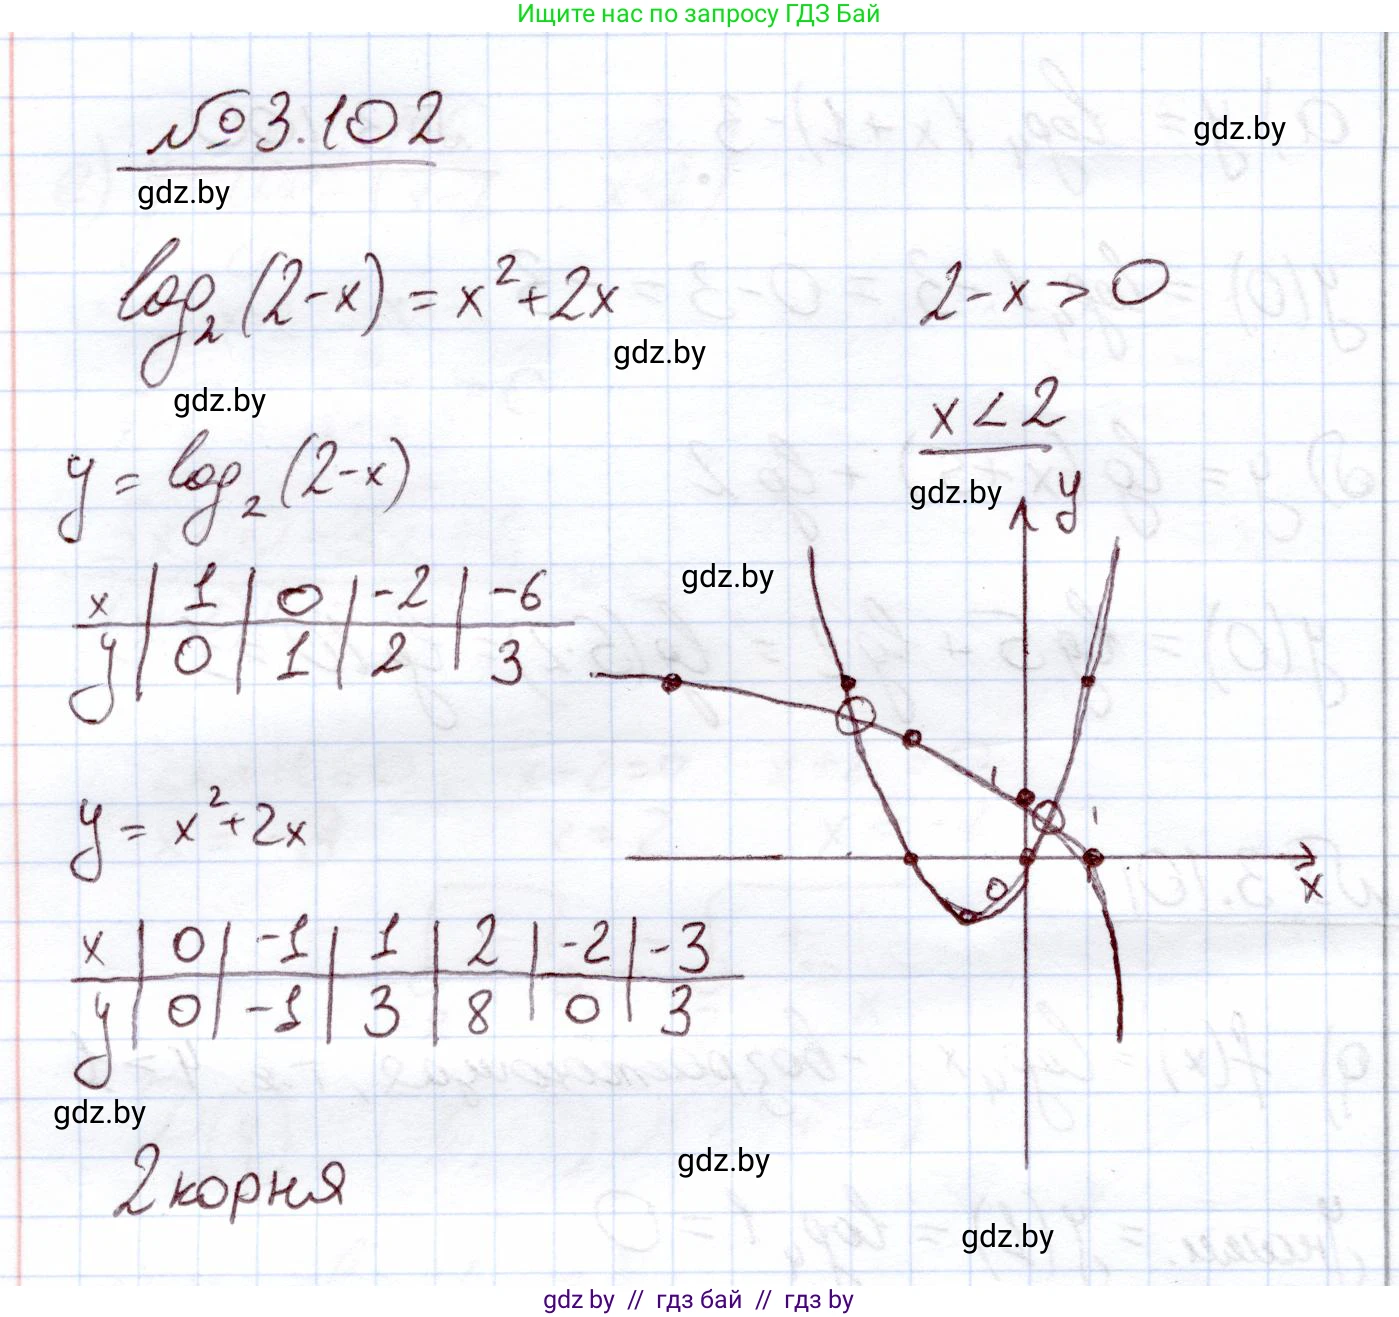 Ищите нас по запросу ГДЗ Бай
№3.102
gdz.by
gdz.by
log₂(2-x) = x²+2x
2-x > 0
gdz.by
gdz.by
x < 2
y = log₂(2-x)
gdz.by
y
gdz.by
x | 1 | 0 | -2 | -6
y | 0 | 1 | 2 | 3
1
1
y = x²+2x
0
x
x | 0 | -1 | 1 | 2 | -2 | -3
y | 0 | -1 | 3 | 8 | 0 | 3
gdz.by
gdz.by
2 корня
gdz.by
gdz by // гдз бай // гдз by